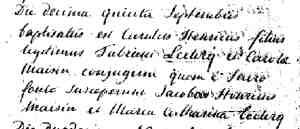 Die decima quinta Septembris
baptisatus est Carolus Henricus filius
legitimus Fabricii Leclerq et Carola
Maisin conjugum quem e sacro
fonte susceperunt Jacobus Henricus
Maisin et Maria Catharina Leclerq
Die